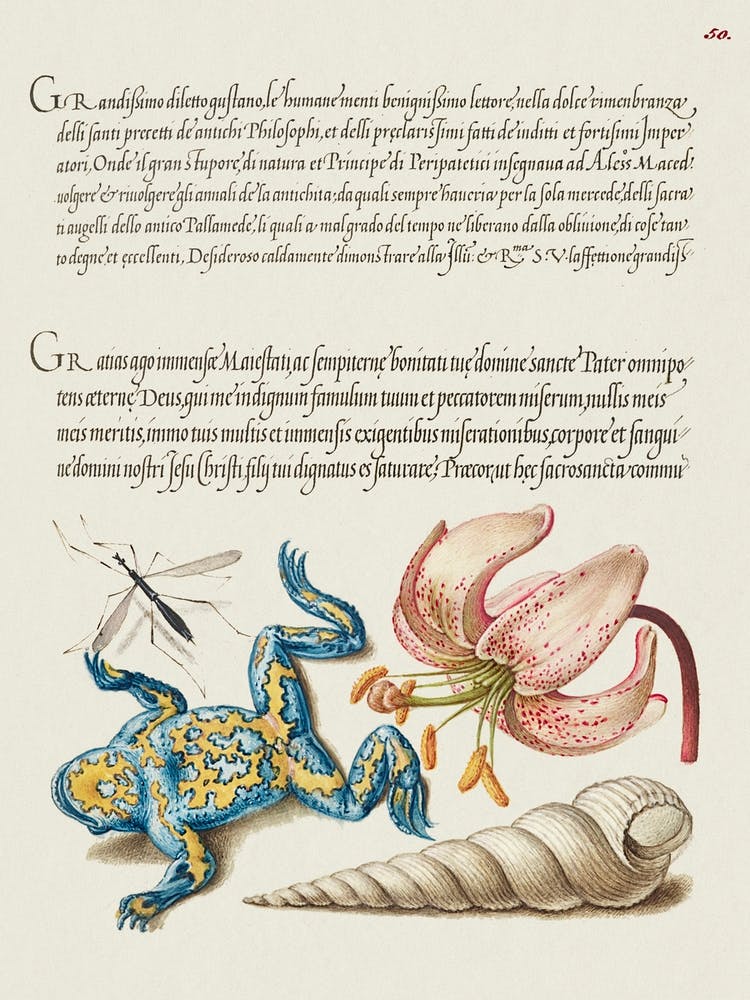 50.
GRandißimo diletto gustano, le humane menti benignißimo lettore, nella dolce rimenbranza,
delli santi precetti de antichi Philosophi, et delli pręclarissimi fatti de inditti et fortisimi Imper-
atori, Onde il gran stupore, di natura et Principe di Peripatetici insegnaua ad Aless. Maced.
volgere & riuolgere gli annali de la antichita; da quali sempre haueria per la sola mercede, delli sacra
ti augelli dello antico Pallamede, li quali a mal grado del tempo ne liberano dalla obliuione, di cose tan-
to degne, et eccellenti, Desideroso caldamente dimonstrare alla Illu: & R.ma S. V. laffettione grandiss-
GRatias ago immensæ Maiestati, ac sempiternę bonitati tuę domine sancte Pater omnipo-
tens æternę Deus, qui me indignum famulum tuum et peccatorem miserum, nullis meis
meis meritis, immo tuis multis et immensis exigentibus miserationibus, corpore et sangui-
ne domini nostri Jesu Christi filij tui dignatus es saturare; Præcor, ut hęc sacrosancta commu-